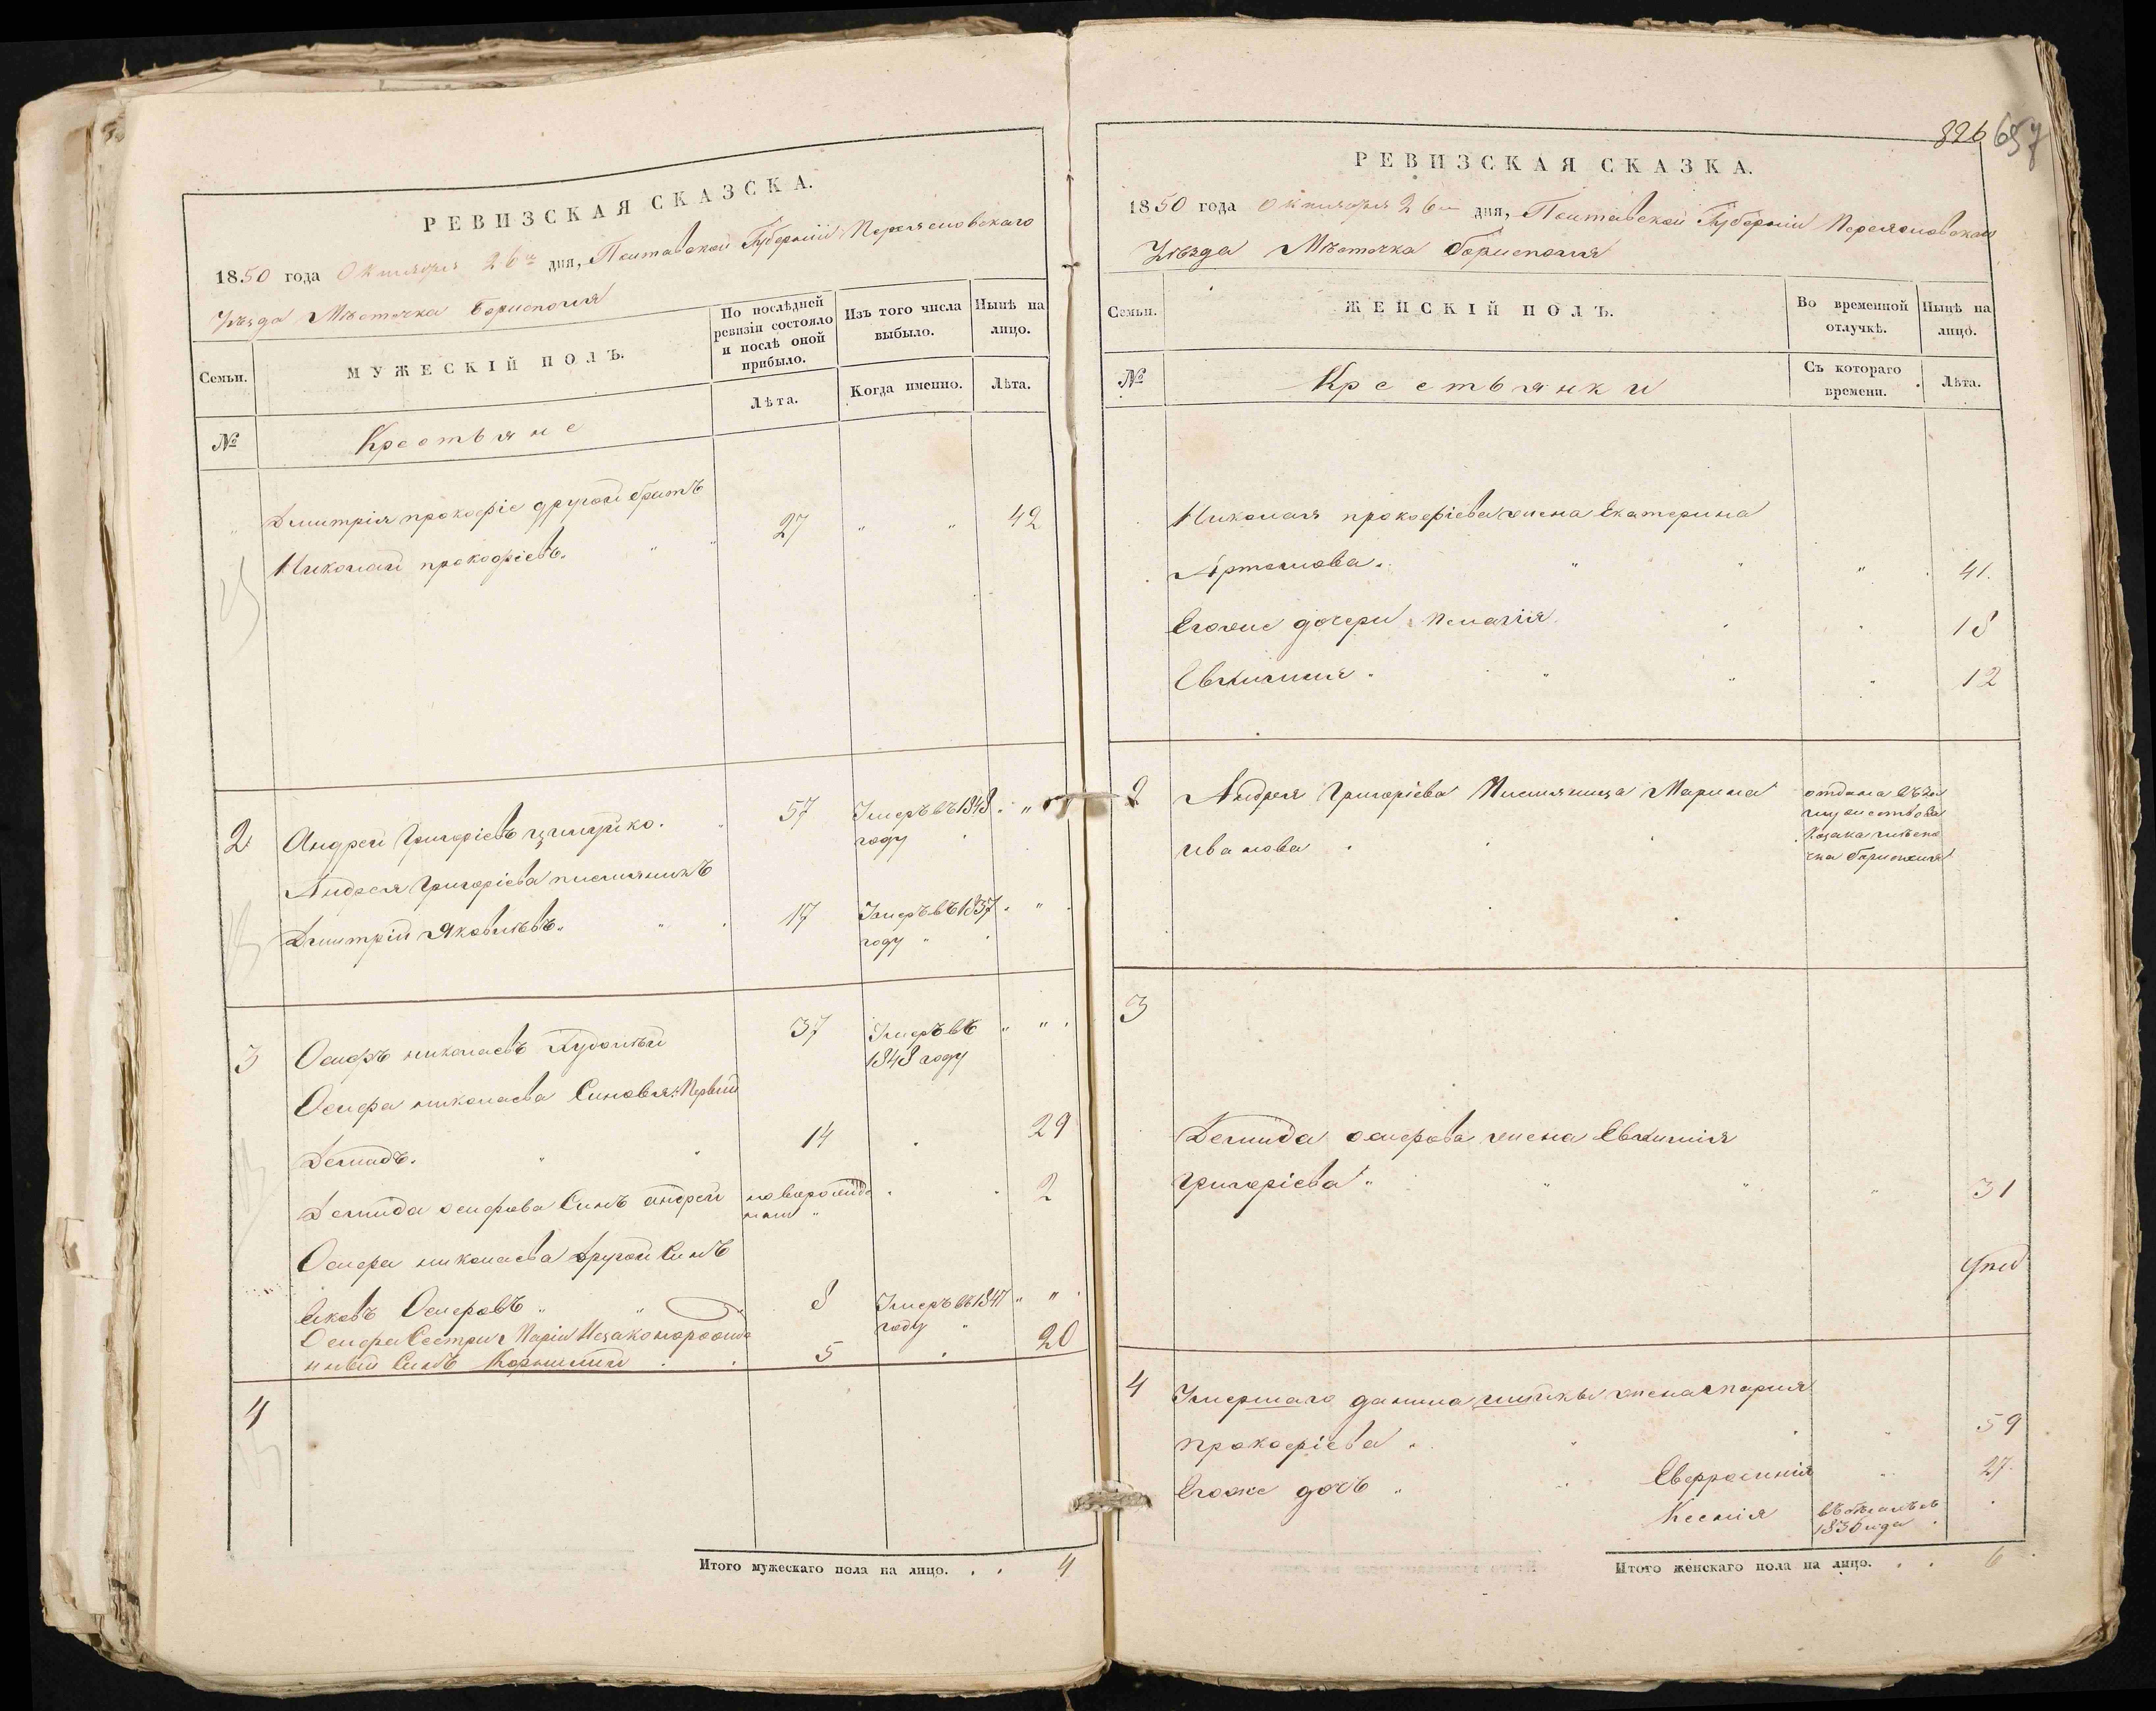 РЕВИЗСКАЯ СКАЗСКА.
1850 года Октября 26го дня, Полтавской Губерніи Переясловскаго
Уѣзда Мѣстечка Борисполя
Семьи.
МУЖЕСКІЙ ПОЛЪ.
По послѣдней ревизіи состояло и послѣ оной прибыло.
Изъ того числа выбыло.
Нынѣ на лицо.
№
Крестьяне
Лѣта.
Когда именно.
Лѣта.
Дмитрія прокофіе другой братъ
Николай прокофіевъ. 27 " " 42
2 Андрей Григоріевъ 57 Умеръ въ 1848 "
году
Андрея Григоріева племяникъ
Дмитрій Яковлевъ. 17 Умеръ въ 1837 "
году "
3 Осифъ николаевъ 37 Умеръ въ " "
1848 году
Осифа николаева Синовья: Первий
Демидъ. " " 14 29
Демида осифова Синъ андрей новорожде 2
ный "
Осифа николаева другой Синъ
Яковъ Осифовъ " " 8 Умеръ въ 1847 " "
году "
Осифа Сестри Маріи Незаконорожде
нный Синъ Корнилий 5 20
4
Итого мужескаго пола на лицо. . . 4
826 657
РЕВИЗСКАЯ СКАЗКА.
1850 года Октября 26го дня, Полтавской Губерніи Переясловскаго
Уѣзда Мѣстечка Борисполя
Семьи.
ЖЕНСКІЙ ПОЛЪ.
Во временной отлучкѣ.
Нынѣ на лицо.
№
Крестьянки
Съ котораго времени.
Лѣта.
Николая прокофіева жена Екатерина
Артемова. " " " 41.
Егоже дочери Пелагія 18
Евдокия " " " " 12
2 Андрея Григоріева Племяница Марина
ивановa
отдана въ за
мужество за
Козака мѣсте
чка Борисполя
3
Демида осифова жена Евфимія
Григоріева " " " " 31
4 Умершаго данила жена Марія
прокофіева " " " 59
Егоже дочь " Евфросинія " 27.
Ксенія въ бегахъ съ
1830 года
Итого женскаго пола на лицо. . . 6